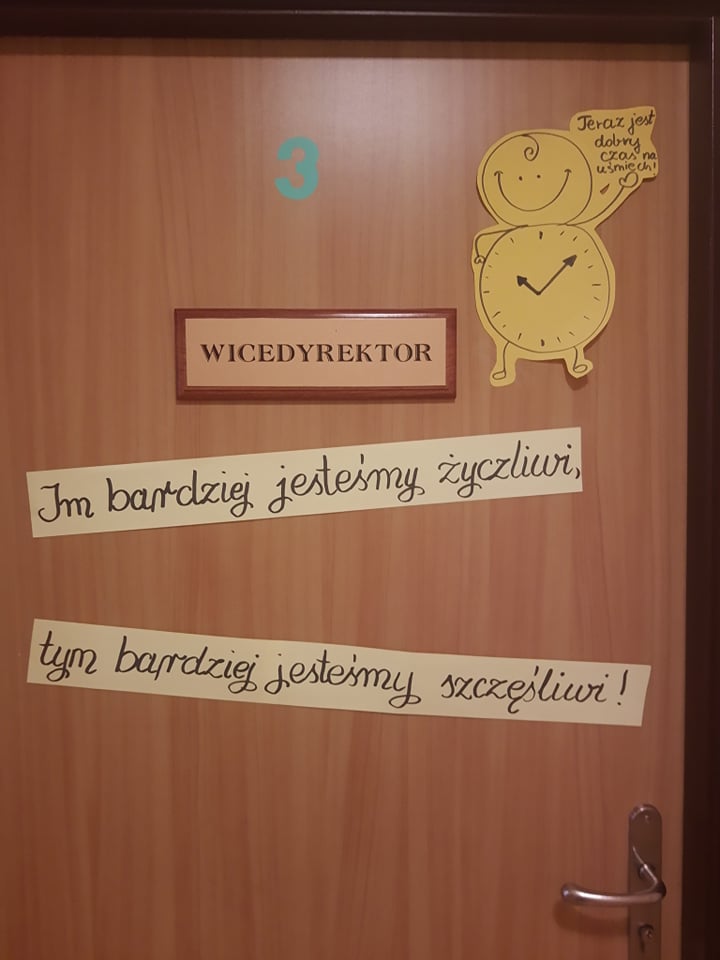 3
Teraz jest
dobry
czas na
uśmiech!
WICEDYREKTOR
Im bardziej jesteśmy życzliwi,
tym bardziej jesteśmy szczęśliwi!